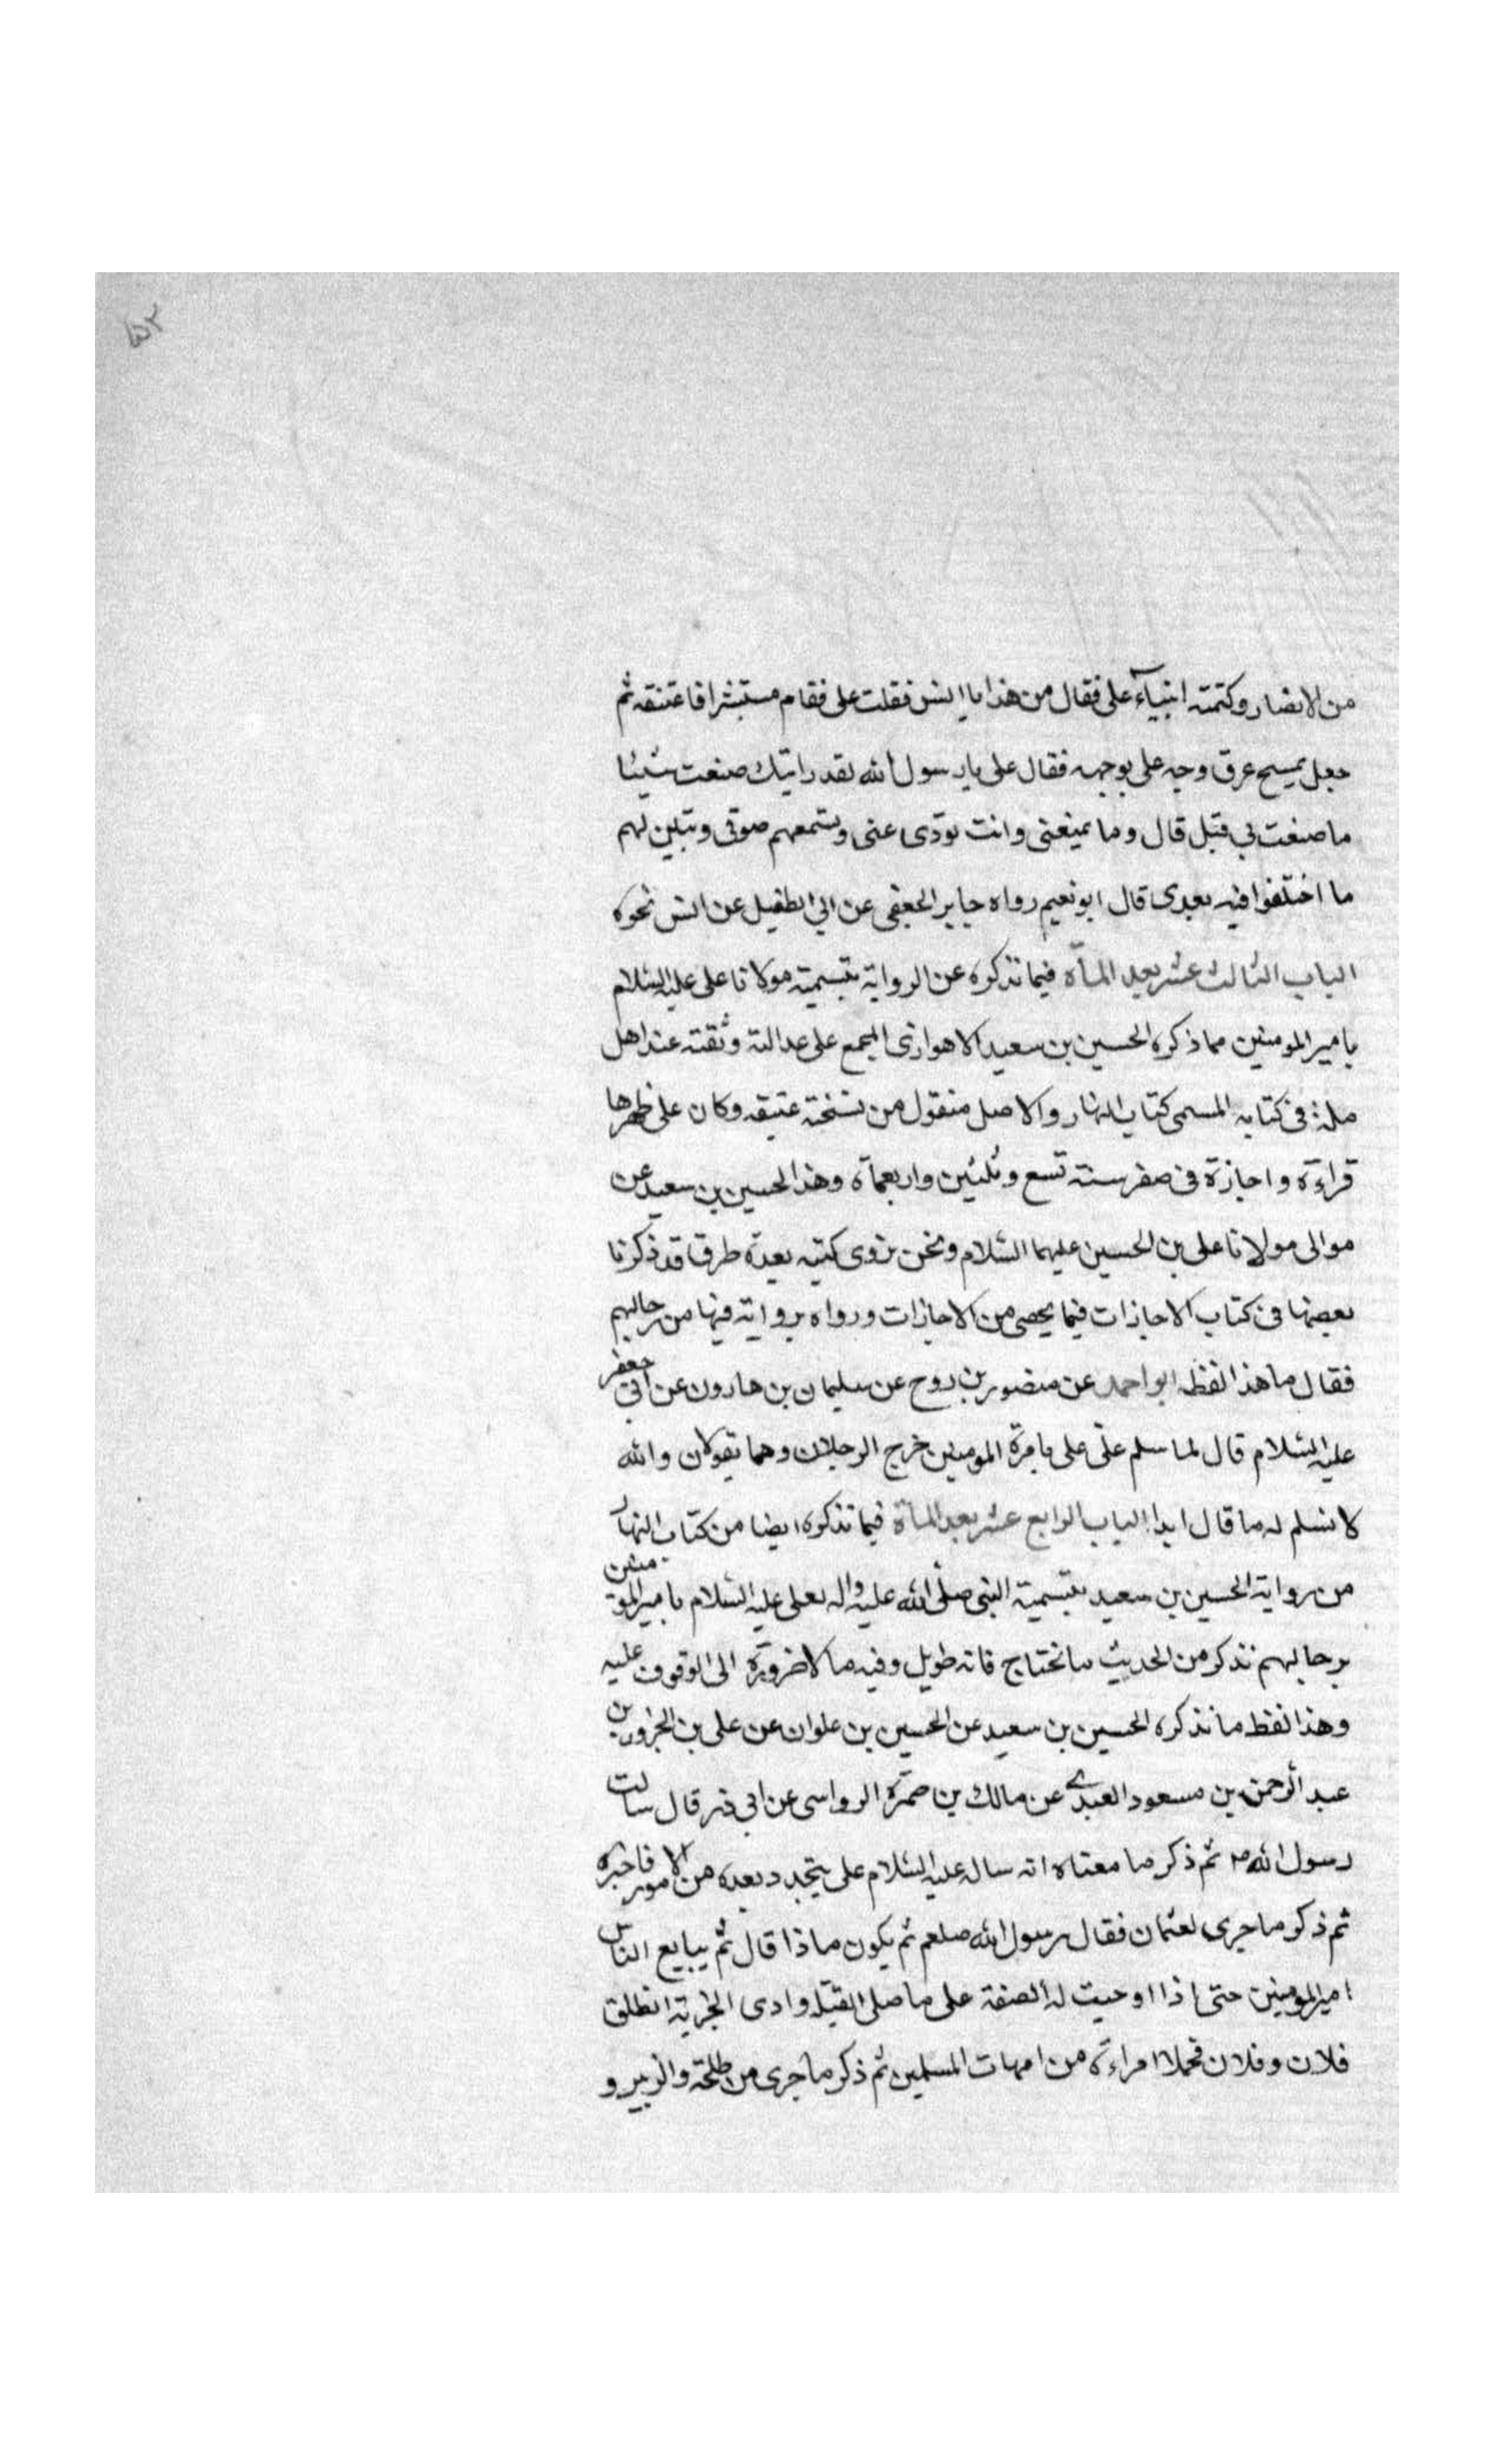 ۵۲
من الانصار وكتمته اذ جاء على فقال من هذا يا انس فقلت على فقام مستبشرا فاعتنقه ثم
جعل يمسح عرق وجه على بوجهه فقال على يا رسول الله لقد رايتك صنعت شيئا
ما صنعت بي قبل قال وما يمنعنى وانت تودّى عنى وتسمعهم صوتى وتبين لهم
ما اختلفوا فيه بعدى قال ابو نعيم رواه جابر الجعفى عن ابي الطفيل عن انس نحوه
الباب الثالث عشر بعد المأة فيما نذكره عن الرواية بتسمية مولانا على عليه السّلام
بامير المومنين مما ذكره الحسين بن سعيد الاهوازى المجمع على عدالته وثقته عند اهل
ملة فى كتابه المسمى كتاب البهار والاصل منقول من نسخة عتيقه وكان على ظهرها
قراءة واجازة فى صفر سنة تسع وثلثين واربعمأة وهذا الحسين بن سعيد عن
موالى مولانا على بن الحسين عليهما السّلام ونحن نروى كتبه بعدة طرق قد ذكرنا
بعضها فى كتاب الاجازات فيما يحصى من الاجازات ورواه برواية فيها من رجالهم
فقال ما هذا لفظه ابو احمد عن منصور بن روح عن سليمان بن هارون عن ابي جعفر
عليه السّلام قال لما سلم علىّ على بامرة المومنين خرج الرجلان وهما يقولان والله
لا نسلم له ما قال ابدا الباب الرابع عشر بعد المأة فيما نذكره ايضا من كتاب البهار
من رواية الحسين بن سعيد بتسمية النبى صلّى الله عليه واله لعلى عليه السّلام بامير المومنين
برجالهم نذكر من الحديث ما نحتاج فانه طويل وفيه ما لا ضرورة الى الوقوف عليه
وهذا لفظ ما نذكره الحسين بن سعيد عن الحسين بن علوان عن على بن الحزور بن
عبد الرحمن بن مسعود العبدى عن مالك بن ضمرة الرواسى عن ابى ذر قال سالت
رسول الله ص ثم ذكر ما معناه انه ساله عليه السّلام على يتجدد بعده من الامور فاخبره
ثم ذكر ما جرى لعثمان فقال رسول الله صلعم ثم يكون ماذا قال ثم يبايع الناس
امير المومنين حتى اذا اوجبت له الصفقة على ما صلى القبلة وادى الجزية انطلق
فلان وفلان فحملا امراءة من امهات المسلمين ثم ذكر ما جرى من طلحة والزبير و